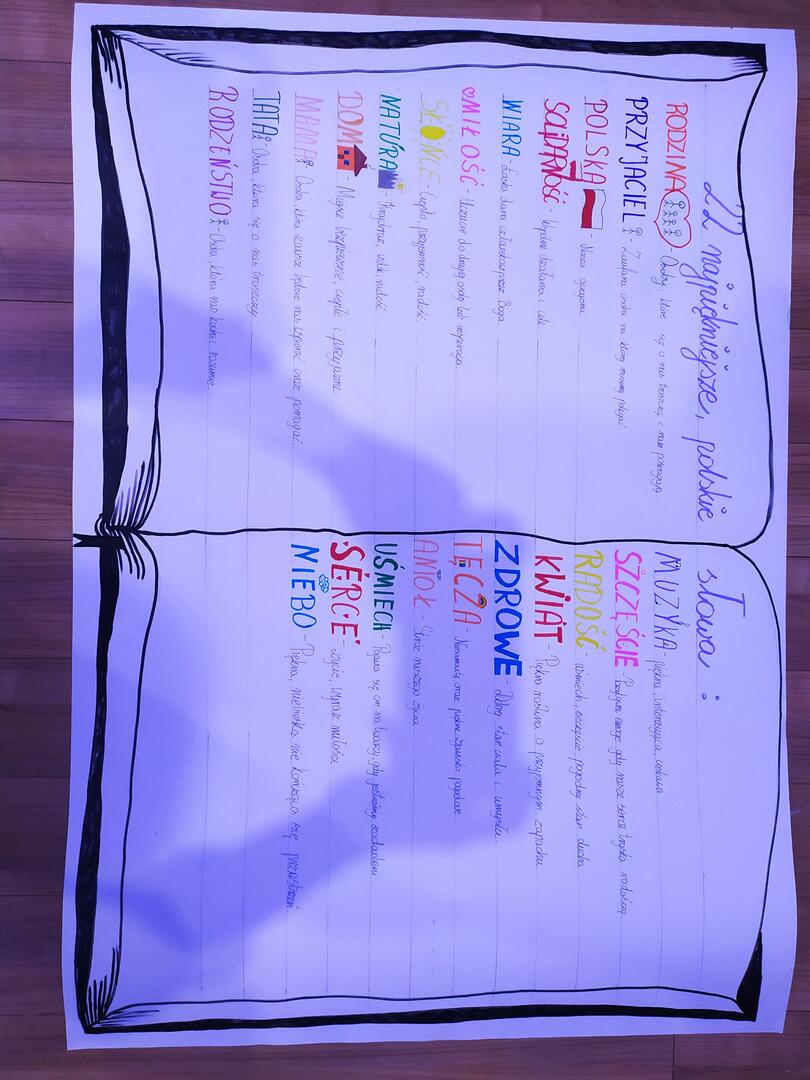 22 najpiękniejsze, polskie słowa:
RODZINA - Osoby, które się o nas troszczą i nam pomagają
PRZYJACIEL - Zaufana osoba na którą możemy polegać
POLSKA - Nasza ojczyzna
SOLIDARNOŚĆ - Wspólne działania i cele
WIARA - Łaska dana człowiekowi przez Boga
MIŁOŚĆ - Uczucie do drugiej osoby lub
SŁOŃCE - Ciepło, przyjemność, radość
NATURA - radość
DOM - Miejsce bezpieczne, ciepłe i przyjazne
MAMA - Osoba, która zawsze będzie nas wspierać oraz pomagać.
TATA - Osoba, która się o nas troszczy
RODZEŃSTWO - Osoba, która nas kocha i rozumie.
MUZYKA - piękna, interesująca, ciekawa
SZCZĘŚCIE - gdy nasze serce tryska radością
RADOŚĆ - uśmiech, szczęście, pogodny stan ducha
KWIAT - Piękna roślina o przyjemnym zapachu
ZDROWE - Dobry stan ciała i umysłu
TĘCZA - Niesamowite oraz piękne zjawisko pogodowe
ANIOŁ - Stróż naszego życia
UŚMIECH - Pojawia się on na twarzy, gdy jesteśmy zadowoleni
SERCE - Życie, wyraz miłości
NIEBO - Piękna, niebieska nie kończąca się przestrzeń